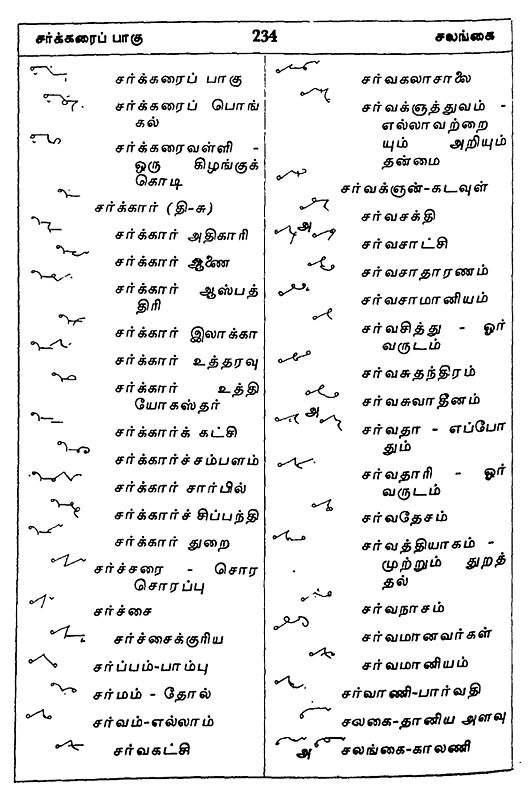 சர்க்கரைப் பாகு 234 சலங்கை
சர்க்கரைப் பாகு
சர்க்கரைப் பொங்
கல்
சர்க்கரைவள்ளி -
ஒரு கிழங்குக்
கொடி
சர்க்கார் (தி-சு)
சர்க்கார் அதிகாரி
சர்க்கார் ஆணை
சர்க்கார் ஆஸ்பத்
திரி
சர்க்கார் இலாக்கா
சர்க்கார் உத்தரவு
சர்க்கார் உத்தி
யோகஸ்தர்
சர்க்கார்க் கட்சி
சர்க்கார்ச்சம்பளம்
சர்க்கார் சார்பில்
சர்க்கார்ச் சிப்பந்தி
சர்க்கார் துறை
சர்ச்சரை - சொர
சொரப்பு
சர்ச்சை
சர்ச்சைக்குரிய
சர்ப்பம்-பாம்பு
சர்மம் - தோல்
சர்வம்-எல்லாம்
சர்வகட்சி
சர்வகலாசாலை
சர்வக்ஞத்துவம் -
எல்லாவற்றை
யும் அறியும்
தன்மை
சர்வக்ஞன்-கடவுள்
சர்வசக்தி
அ சர்வசாட்சி
சர்வசாதாரணம்
சர்வசாமானியம்
சர்வசித்து - ஓர்
வருடம்
சர்வசுதந்திரம்
சர்வசுவாதீனம்
அ சர்வதா - எப்போ
தும்
சர்வதாரி - ஓர்
வருடம்
சர்வதேசம்
சர்வத்தியாகம் -
முற்றும் துறத்
தல்
சர்வநாசம்
சர்வமானவர்கள்
சர்வமானியம்
சர்வாணி-பார்வதி
சலகை-தானிய அளவு
அ சலங்கை-காலணி